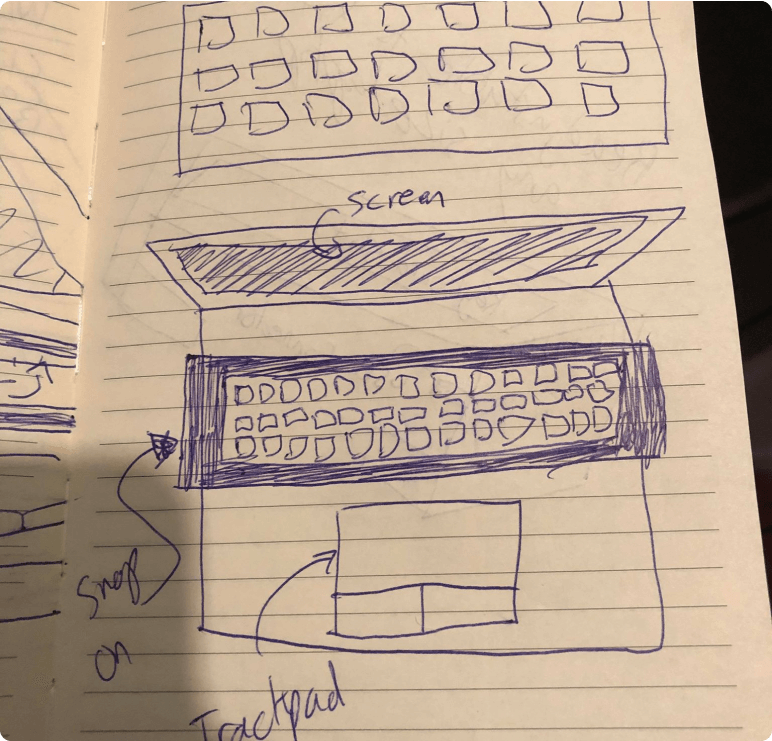 screen
Snap
on
Trackpad